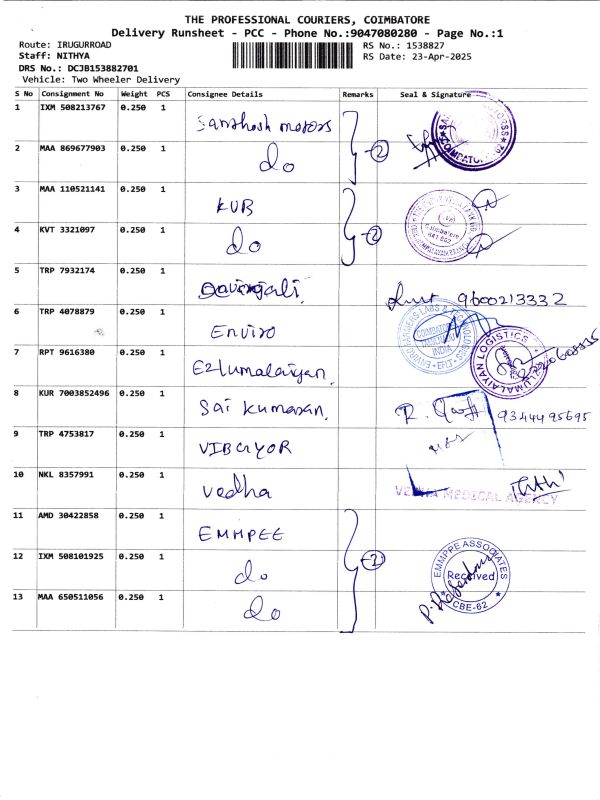 THE PROFESSIONAL COURIERS, COIMBATORE
Delivery Runsheet - PCC - Phone No.:9047080280 - Page No.:1
Route: IRUGURROAD RS No.: 1538827
Staff: NITHYA RS Date: 23-Apr-2025
DRS No.: DCJB153882701
Vehicle: Two Wheeler Delivery
S No Consignment No Weight PCS Consignee Details Remarks Seal & Signature
1 IXM 508213767 0.250 1 Santhosh motors
2 MAA 869677903 0.250 1 do 2
3 MAA 110521141 0.250 1 KUB
4 KVT 3321097 0.250 1 do 2
5 TRP 7932174 0.250 1 9600213332
6 TRP 4078879 0.250 1 Enviro
7 RPT 9616380 0.250 1 Ezlumalaiyan
8 KUR 7003852496 0.250 1 Sai Kumaran 9344495695
9 TRP 4753817 0.250 1
10 NKL 8357991 0.250 1 vedha VEDHA MEDICAL AGENCY
11 AMD 30422858 0.250 1 EMMPEE
12 IXM 508101925 0.250 1 do 2 EMMPPE ASSOCIATES Received CBE-62
13 MAA 650511056 0.250 1 do